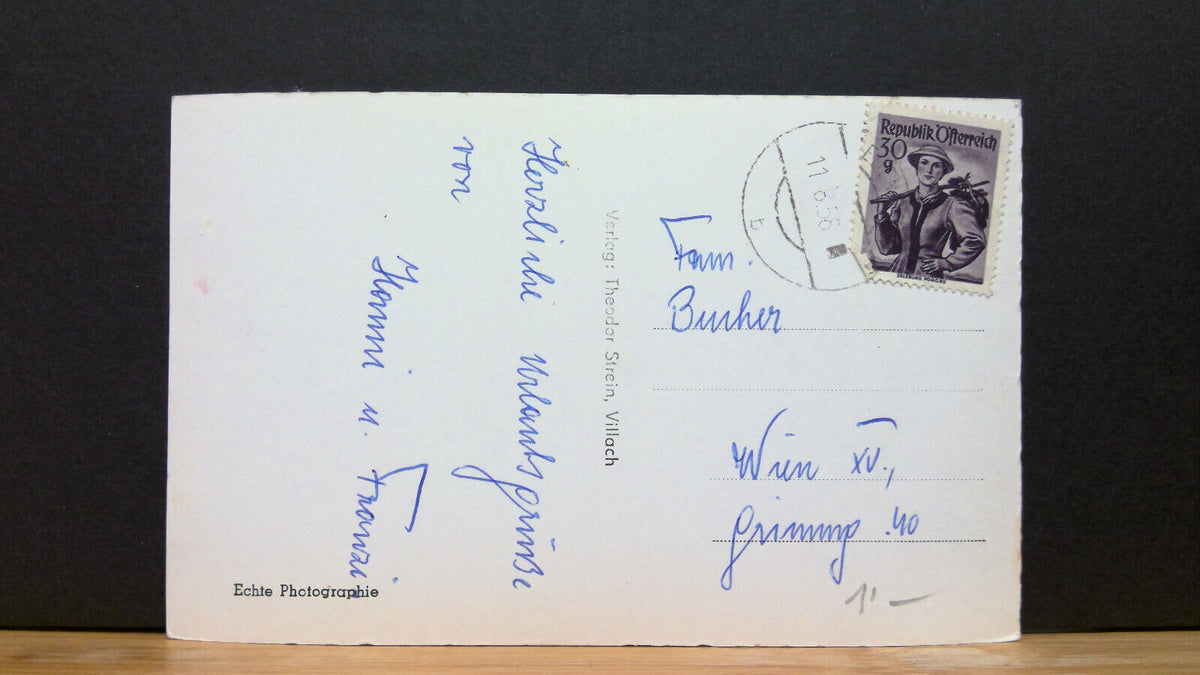 Herzliche Urlaubsgrüße
von
Hanni u. Franzi
Echte Photographie
Verlag: Theodor Strein, Villach
11 8.56
b
Republik Österreich
30
g
SALZBURG, PONGAU
Fam.
Bucher
Wien XV.,
.40
1'—